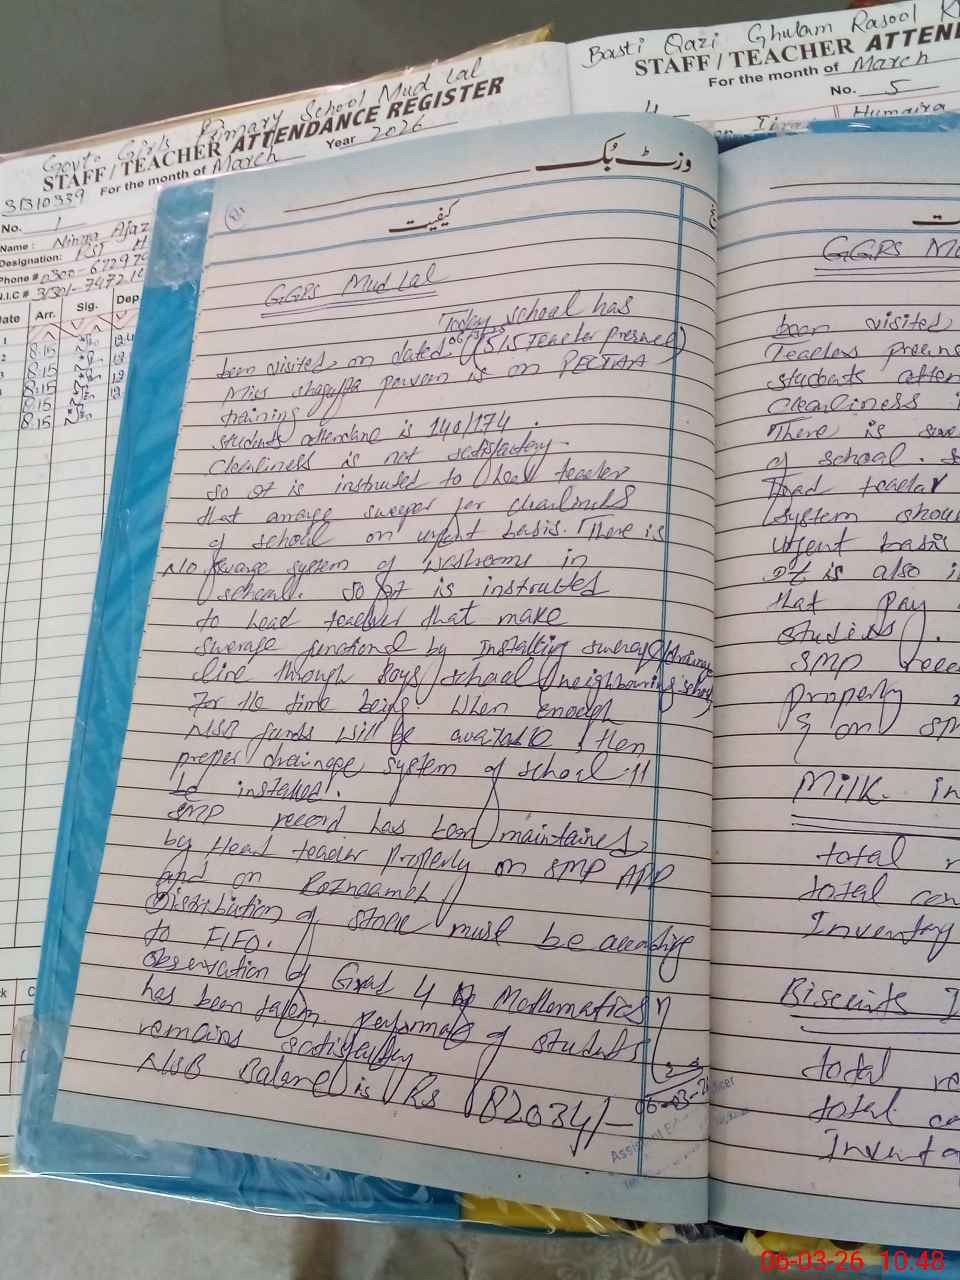 Govt. Girls Primary School Mud Lal
STAFF / TEACHER ATTENDANCE REGISTER
For the month of March Year 2026
31310339
No. 1
Name : Nimra Ajaz
Designation: PST
Phone # 0300-672970
N.I.C # 31301-7472
Date Arr. Sig. Dep
8:15
8:15
8:15
8:15
8:15
Basti Qazi Ghulam Rasool
STAFF / TEACHER ATTEN
For the month of March
No. 5
Humaira
وزٹ بُک
کیفیت
GGPS Mud Lal
Today school has
been visited, on dated, (5/5 Teacher present)
Miss shagufta parveen is on PECTAA
training
students attendance is 140/174.
Cleanliness is not satisfactory.
So it is instructed to head teacher
that arrange sweeper for cleanliness
of school on urgent basis. There is
No swrage system of washrooms in
school. So it is instructed
to head teacher that make
swerage functional by installing swerage/drainage
line through Boys school (neighbouring school)
for the time being. When enough
NSB funds will be available, then
proper drainage system of school ll
be installed.
SMP record has been maintained,
by Head teacher properly on SMP APP
and on Roznaamch
Distribution of stock must be according
to FIFO.
Observation of Grad 4 Mathematics
has been taken. performance of students
remains satisfactory
NSB Balance is Rs (82034/-
06-03-26
Assistant
GGPS Mu
been visited,
Teachers presen
students atten
Cleanliness i
There is swe
of school. S
Head teacher
system shou
urgent basis
It is also i
that pay
students.
SMP reco
Properly
& on SM
Milk in
total r
total con
Inventory
Biscuits I
total re
total co
Inventa
06-03-26 10:48